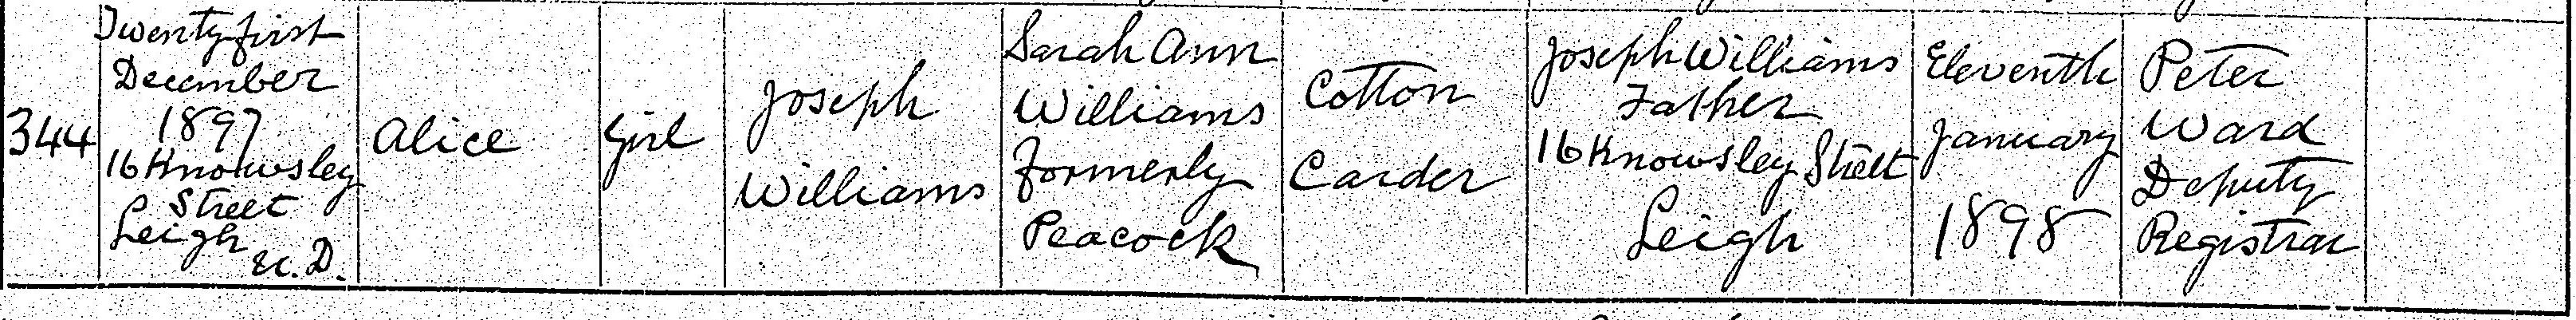 344
Twenty first
December
1897
16 Knowsley
Street
Leigh
U.D.
Alice
Girl
Joseph
Williams
Sarah Ann
Williams
formerly
Peacock
Cotton
Carder
Joseph Williams
Father
16 Knowsley Street
Leigh
Eleventh
January
1898
Peter
Ward
Deputy
Registrar